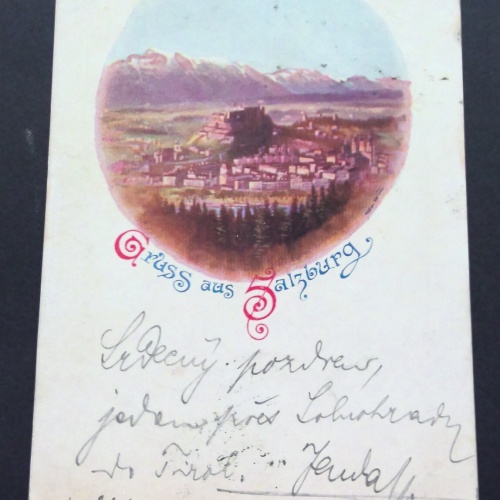 Gruss aus Salzburg
Srdečný pozdrav,
jedem přes Solnohrady
do Tirol. Jenda